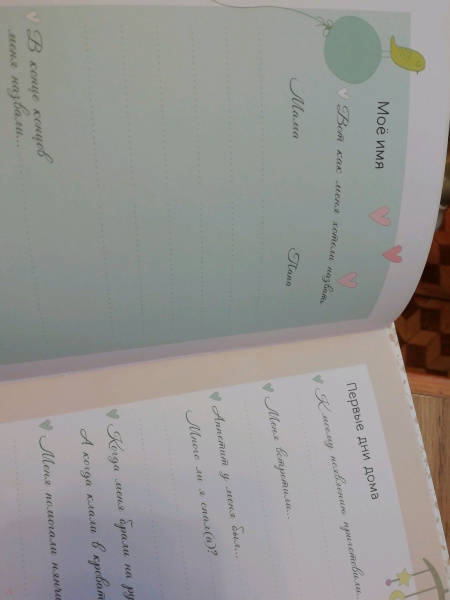 Моё имя
Вот как меня хотели назвать
Мама Папа
В конце концов
меня назвали...
Первые дни дома
К моему появлению приготовили...
Меня встретили...
Аппетит у меня был...
Много ли я спал(а)?
Когда меня брали на
А когда клали в
Меня помогали